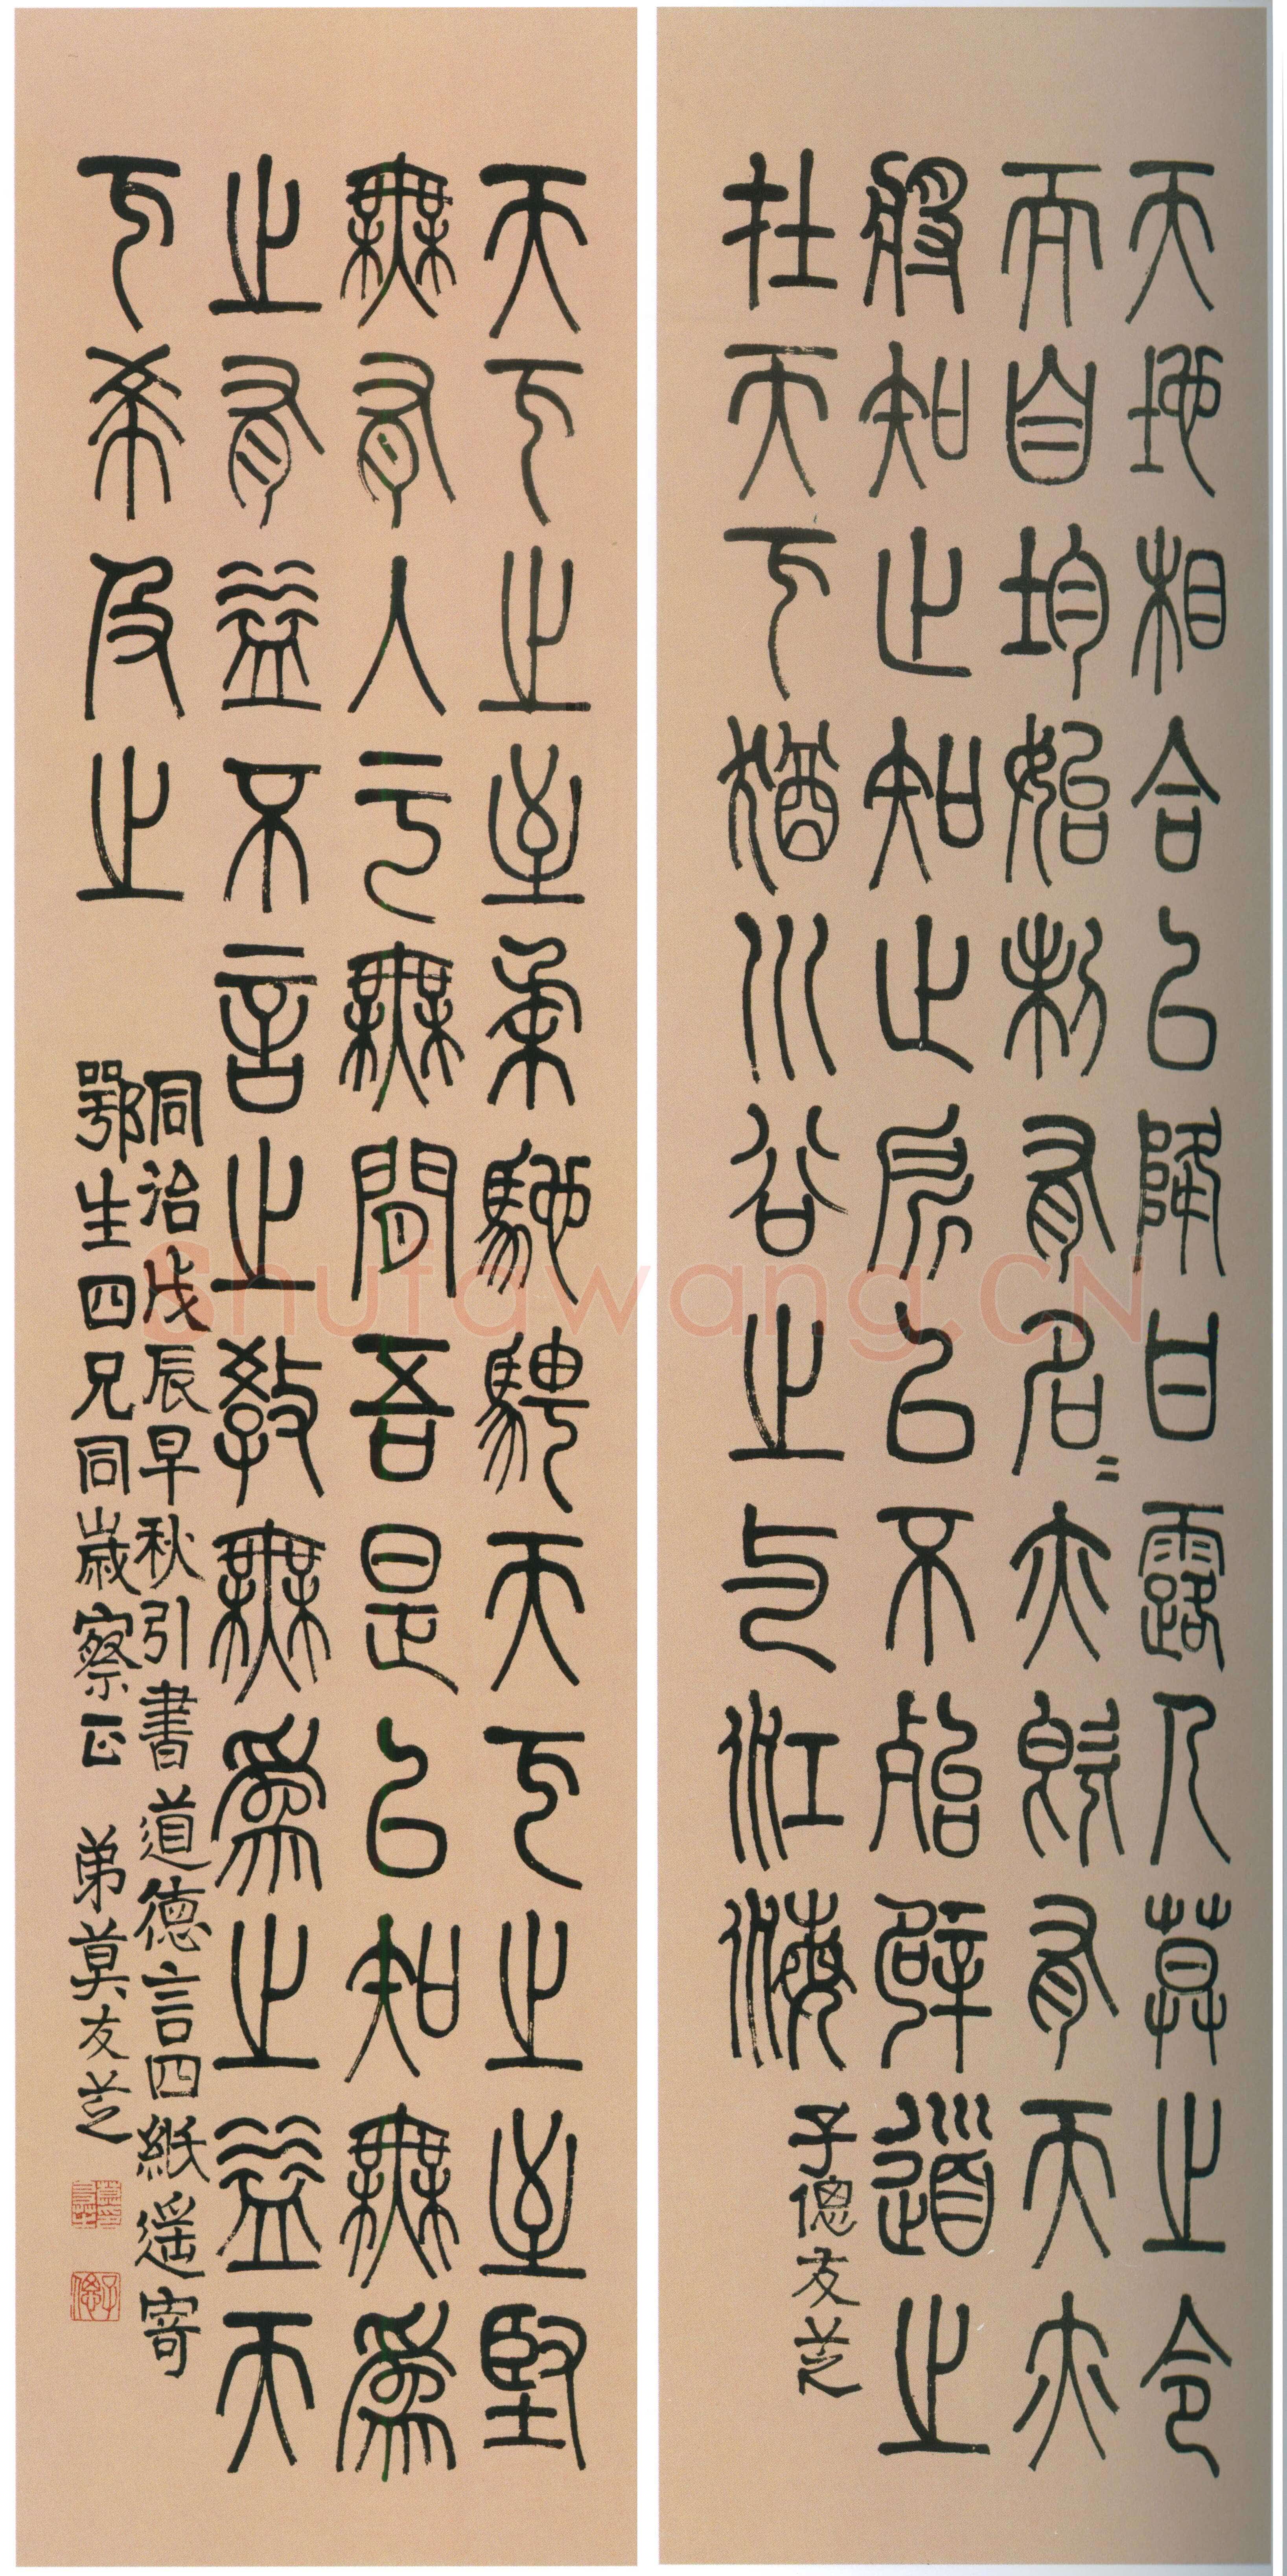 天地相合以降甘露人莫之令
而自均始制有名=亦既有天亦
將知止知止所以不殆譬道之
在天下猶川谷之与江海
子偲友芝
天下之至柔馳騁天下之至堅
無有入于無間吾是以知無為
之有益不言之教無為之益天
下希及之
同治戊辰早秋引書道德言四紙遥寄
鄂生四兄同歲察正 弟莫友芝
子偲
Shufawang.CN